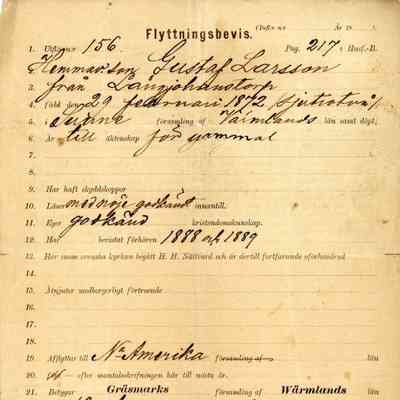 Flyttningsbevis.
1. Utflyttar 156 Pag. 217 i Husf.-B.
2. Hemmansson Gustaf Larsson
3. från Långjohanstorp
4. född den 29 februari 1872 sjutiotvå
5. i Sunne församling af Värmlands län samt döpt;
6. Är till äktenskap för gammal
7.
8.
9. Har haft skyddskoppor
10. Läser med nöje godkändt innantill.
11. Eger godkänd kristendomskunskap.
12. Har bevistat förhören 1888 och 1889
13. Har inom svenska kyrkan begått H. H. Nattvard och är dertill fortfarande oförhindrad
14.
15. Åtnjuter medborgerligt förtroende
16.
17.
18.
19. Afflyttar till N. Amerika församling af län
20. efter mantalsskrifningen här till nästa år.
21. Betygar Gräsmarks församling af Wärmlands län